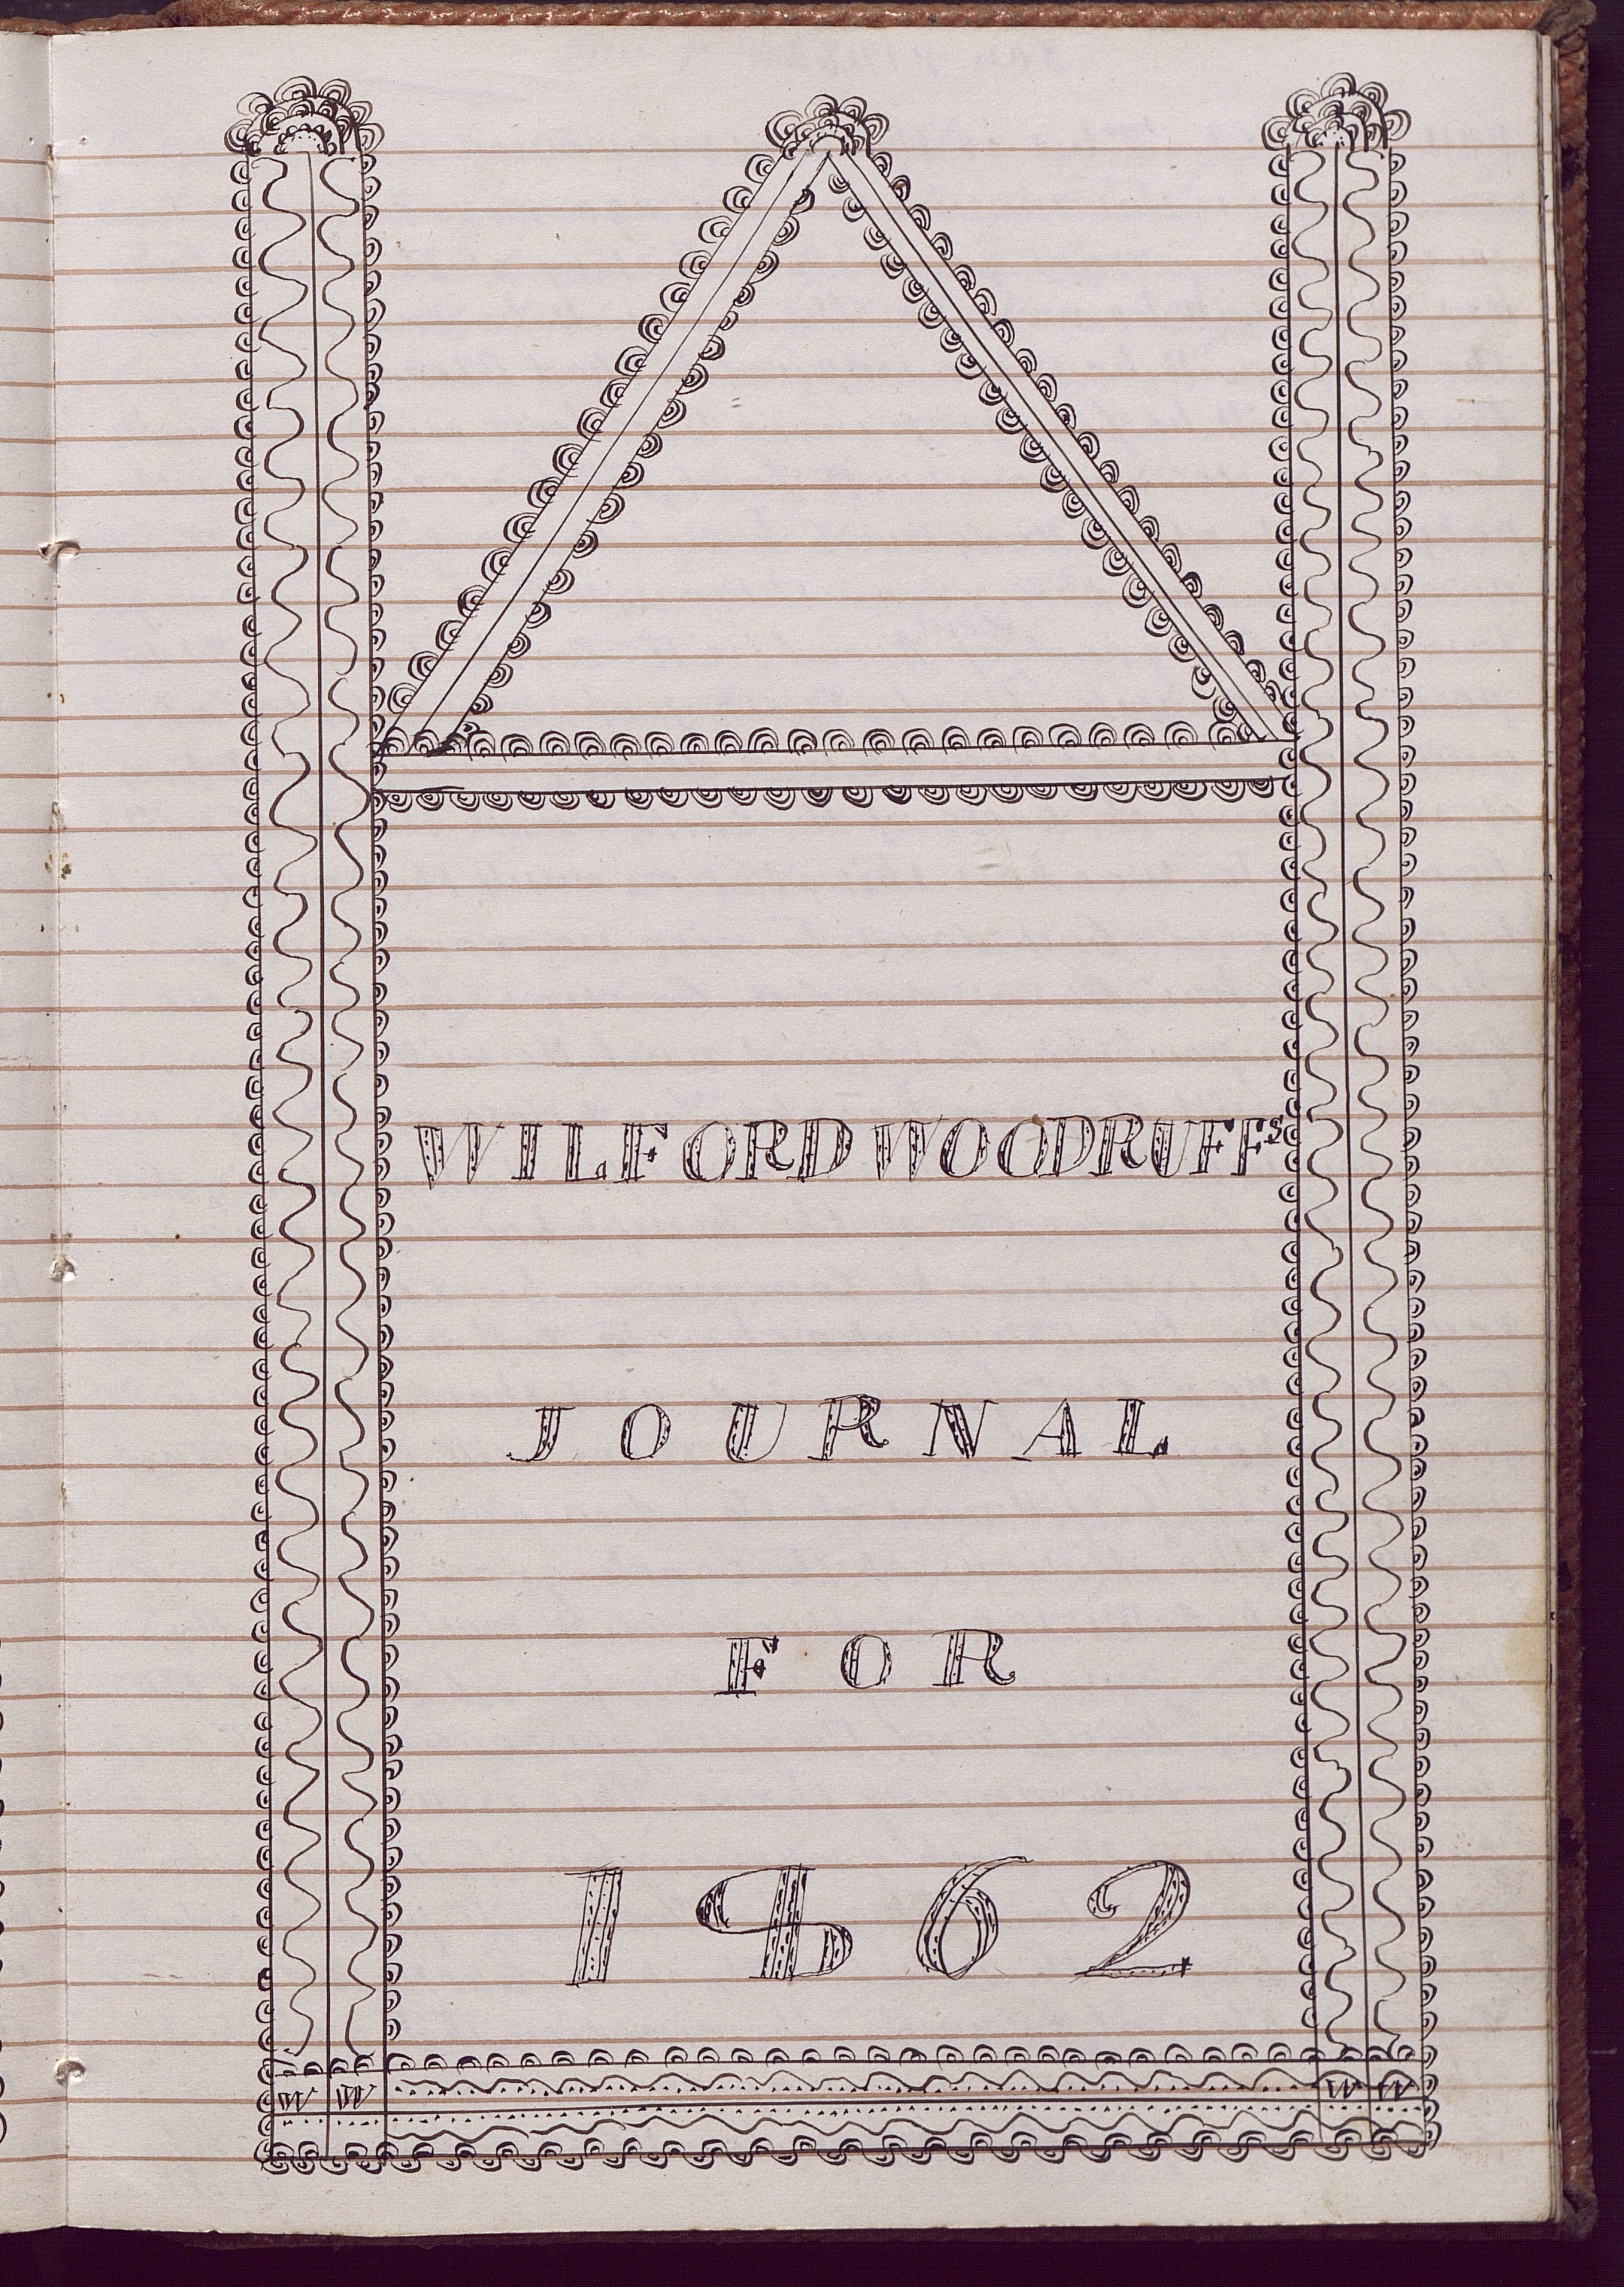 WILFORD WOODRUFFs
JOURNAL
FOR
1862
W W W W